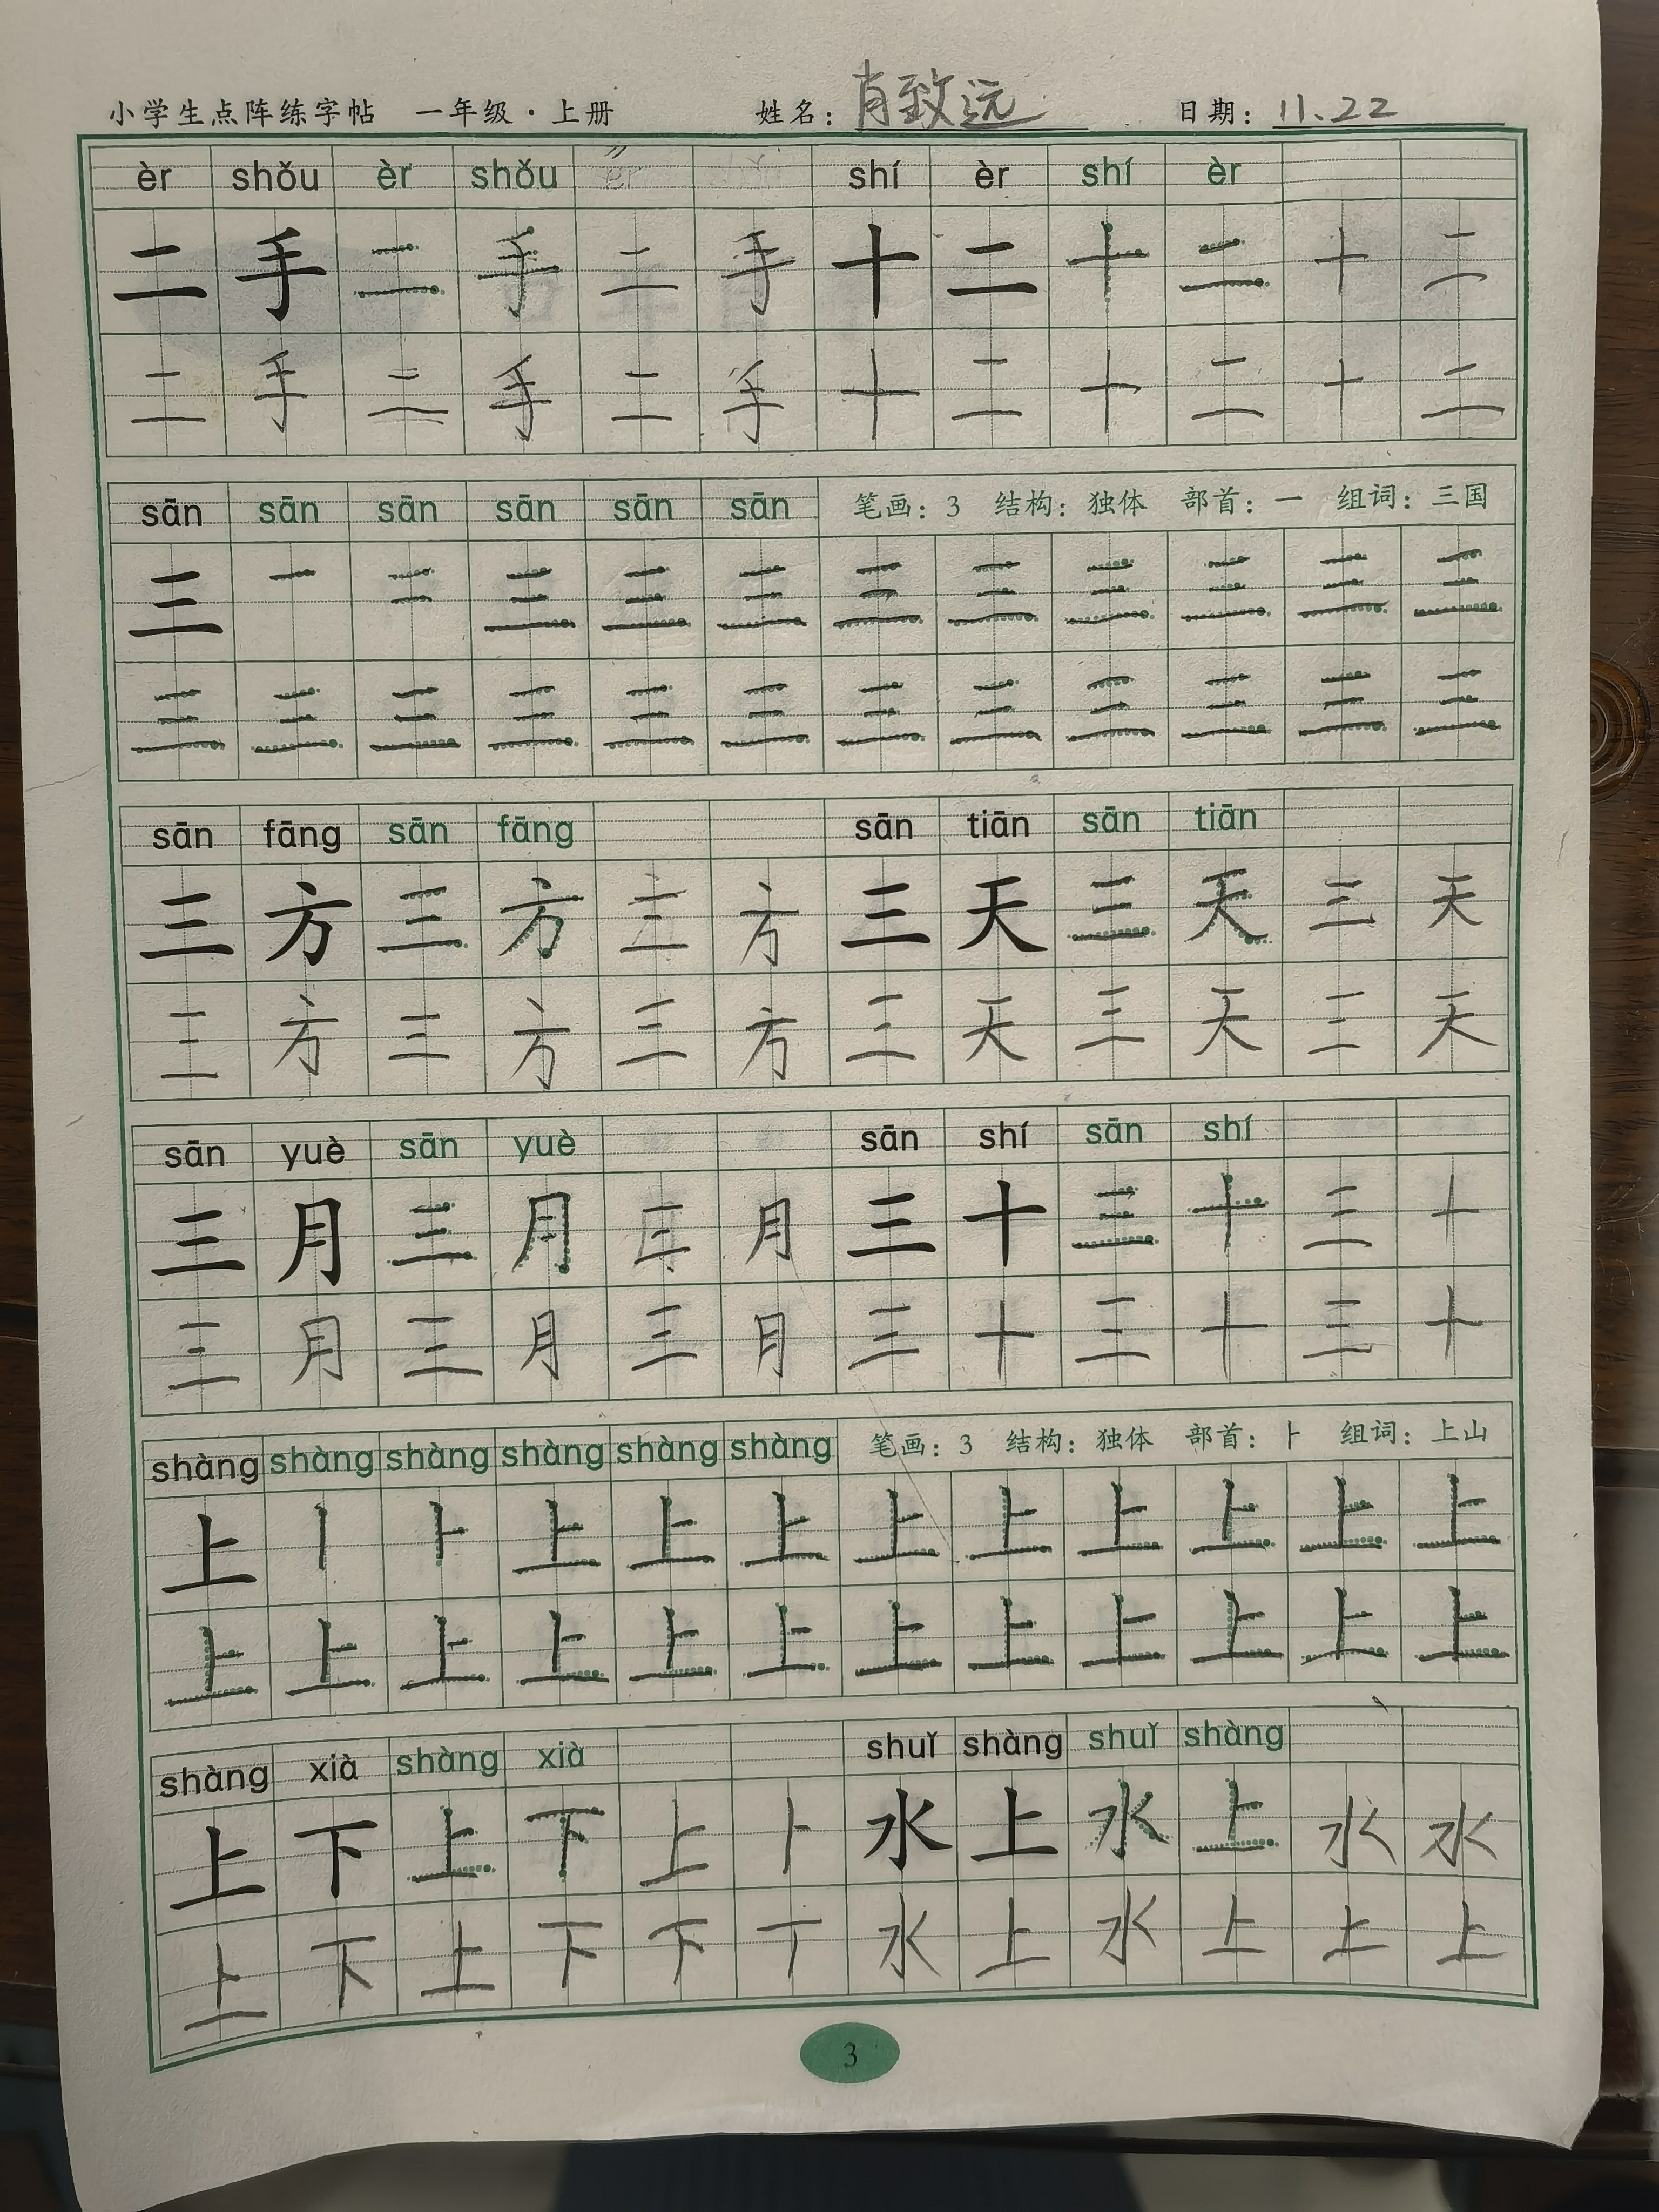 小学生点阵练字帖 一年级·上册 姓名：肖致远 日期：11.22
èr shǒu èr shǒu shí èr shí èr
二 手 二 手 二 手 十 二 十 二 十 二
二 手 二 手 二 手 十 二 十 二 十 二
sān sān sān sān sān sān 笔画：3 结构：独体 部首：一 组词：三国
三 一 二 三 三 三 三 三 三 三 三 三
三 三 三 三 三 三 三 三 三 三 三 三
sān fāng sān fāng sān tiān sān tiān
三 方 三 方 三 方 三 天 三 天 三 天
三 方 三 方 三 方 三 天 三 天 三 天
sān yuè sān yuè sān shí sān shí
三 月 三 月 三 月 三 十 三 十 三 十
三 月 三 月 三 月 三 十 三 十 三 十
shàng shàng shàng shàng shàng shàng 笔画：3 结构：独体 部首：⺊ 组词：上山
上 丨 ⺊ 上 上 上 上 上 上 上 上 上
上 上 上 上 上 上 上 上 上 上 上 上
shàng xià shàng xià shuǐ shàng shuǐ shàng
上 下 上 下 上 卜 水 上 水 上 水 水
上 下 上 下 下 丅 水 上 水 上 上 上
3